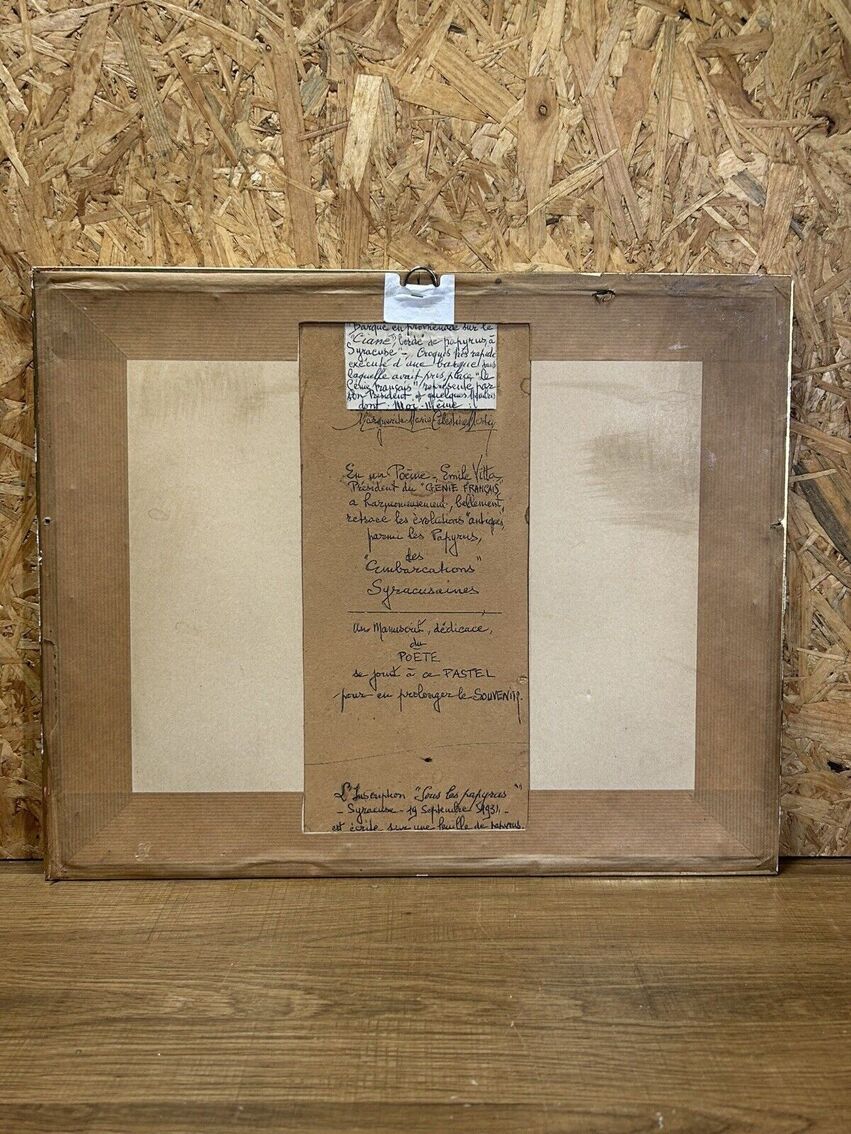 Barque en promenade sur le
"Ciane", bordé de papyrus, à
Syracuse -, Croquis très rapide
exécuté d'une barque, dans
laquelle avait pris place "le
Génie Français" représenté par
son Président et quelques
dont Moi-Même :
Marguerite-Marie Célestine
En un Poème, Emile Vitta,
Président du "GENIE FRANÇAIS",
a harmonieusement, bellement,
retracé les évolutions "antiques"
parmi les Papyrus,
des
"Embarcations"
Syracusaines
Un Manuscrit, dédicace,
du
POËTE
se joint à ce PASTEL
pour en prolonger le SOUVENIR.
L'Inscription "Sous les papyrus"
- Syracuse - 19 Septembre 1931 -
est écrite sur une feuille de papyrus